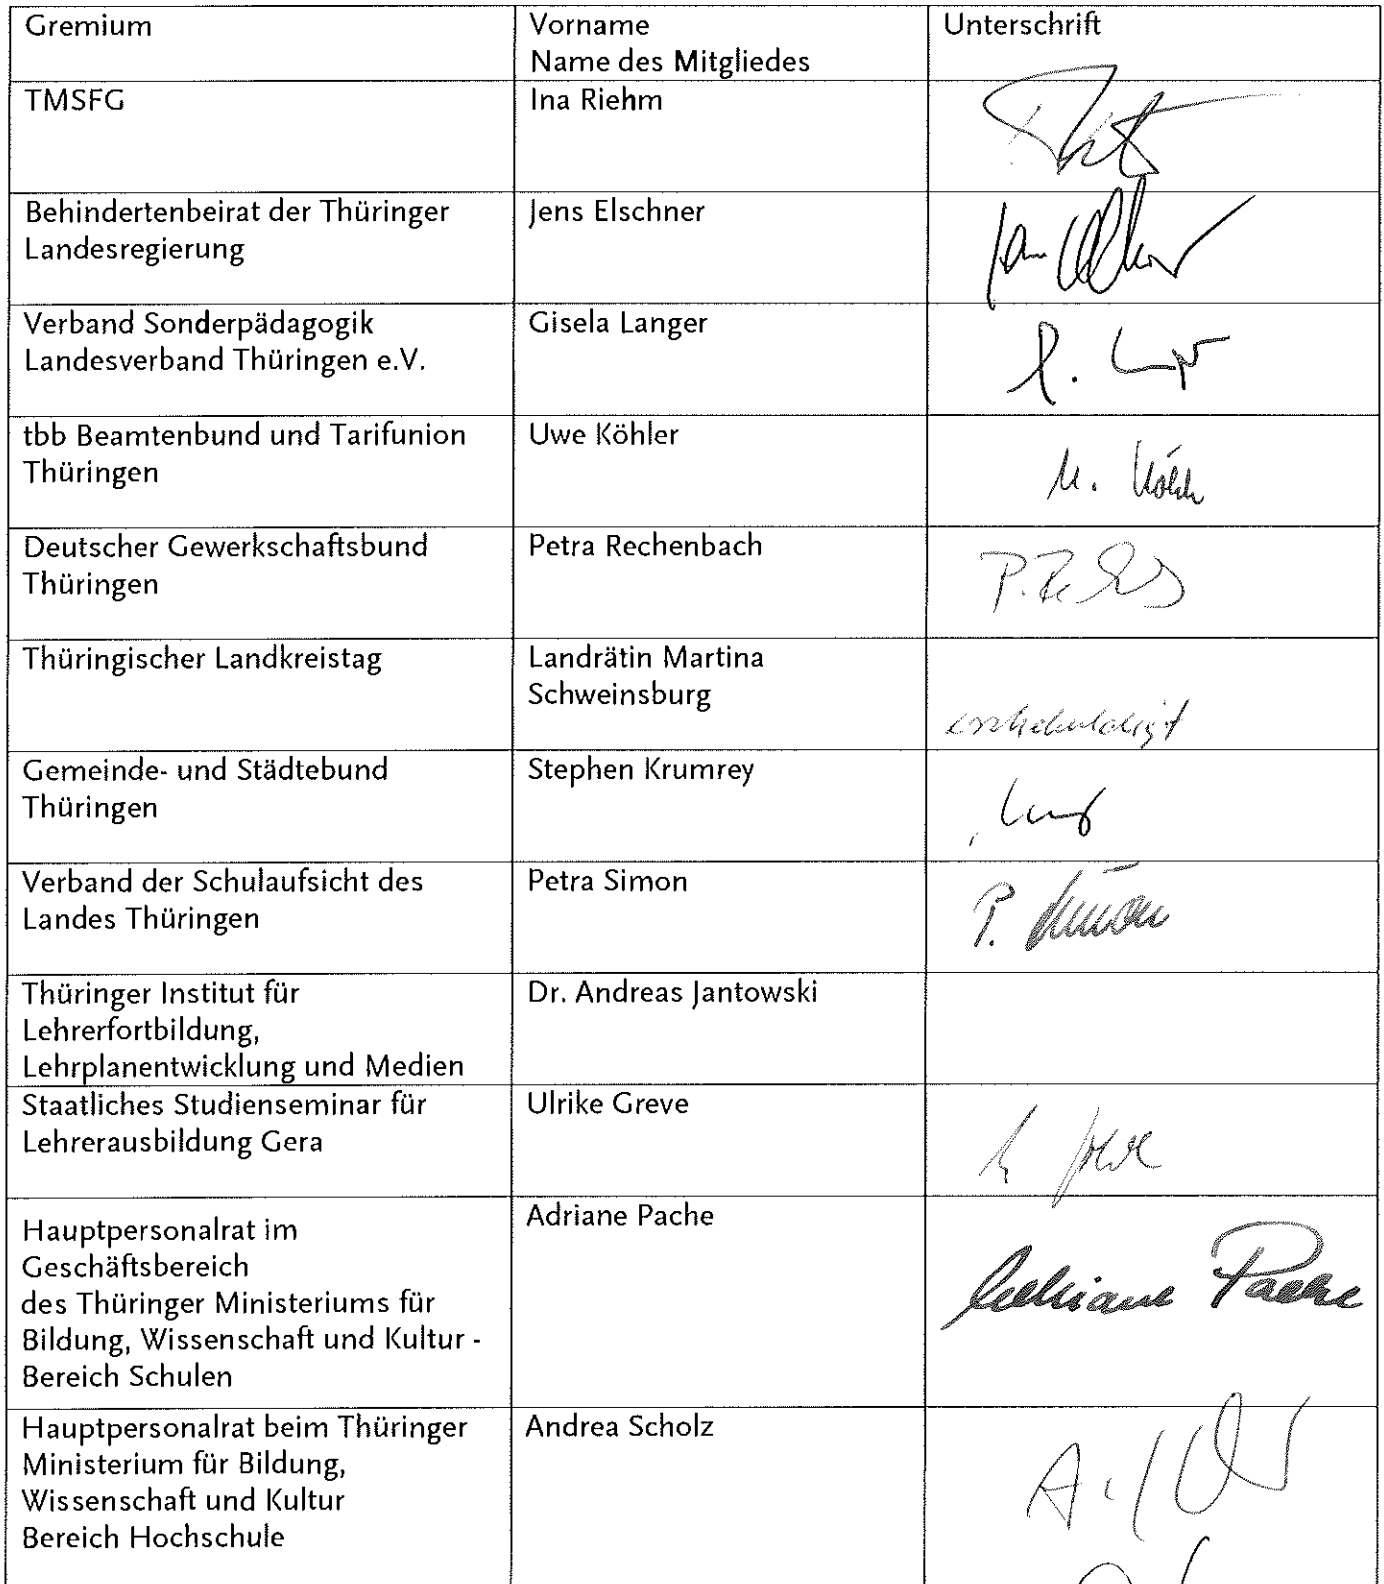 Gremium
Vorname
Name des Mitgliedes
Unterschrift
TMSFG
Ina Riehm
Behindertenbeirat der Thüringer
Landesregierung
Jens Elschner
Verband Sonderpädagogik
Landesverband Thüringen e.V.
Gisela Langer
tbb Beamtenbund und Tarifunion
Thüringen
Uwe Köhler
Deutscher Gewerkschaftsbund
Thüringen
Petra Rechenbach
Thüringischer Landkreistag
Landrätin Martina
Schweinsburg
entschuldigt
Gemeinde- und Städtebund
Thüringen
Stephen Krumrey
Verband der Schulaufsicht des
Landes Thüringen
Petra Simon
P. Simon
Thüringer Institut für
Lehrerfortbildung,
Lehrplanentwicklung und Medien
Dr. Andreas Jantowski
Staatliches Studienseminar für
Lehrerausbildung Gera
Ulrike Greve
Hauptpersonalrat im
Geschäftsbereich
des Thüringer Ministeriums für
Bildung, Wissenschaft und Kultur -
Bereich Schulen
Adriane Pache
Adriane Pache
Hauptpersonalrat beim Thüringer
Ministerium für Bildung,
Wissenschaft und Kultur
Bereich Hochschule
Andrea Scholz